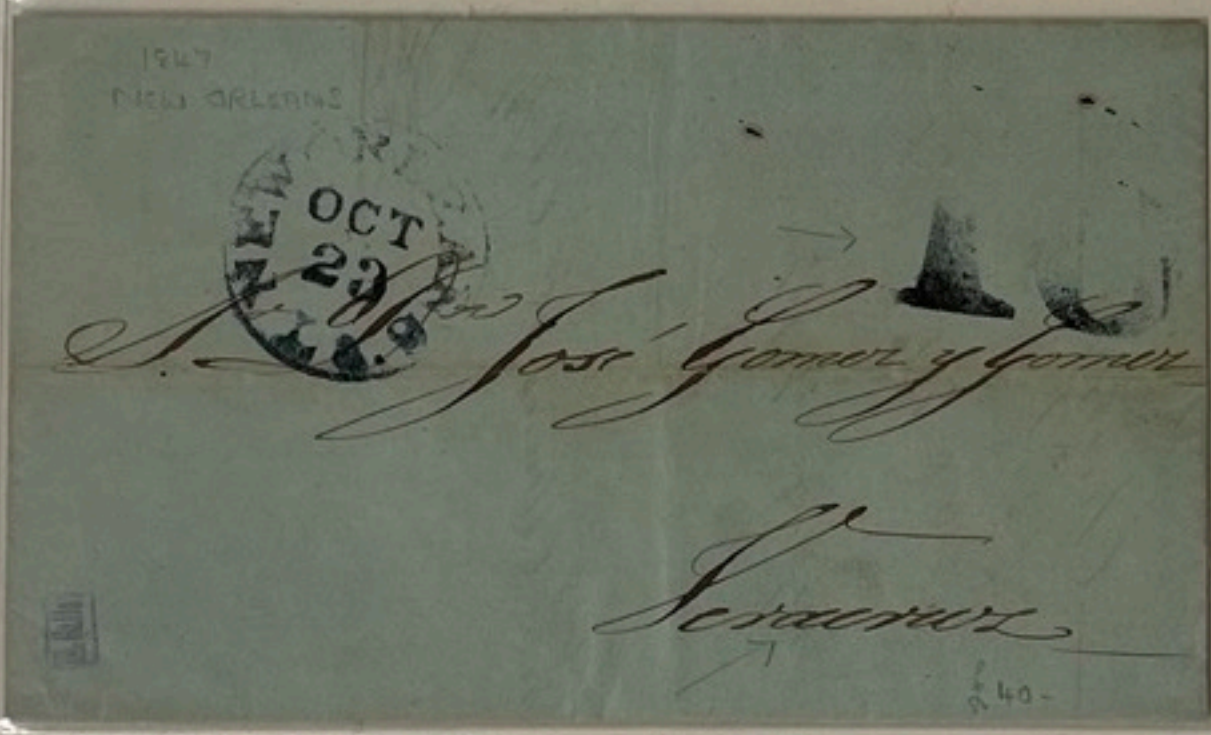 1847
NEW ORLEANS
NEW ORLEANS
OCT
23
LA.
10
S. Dn José Gomez y Gomez
Veracruz
40-